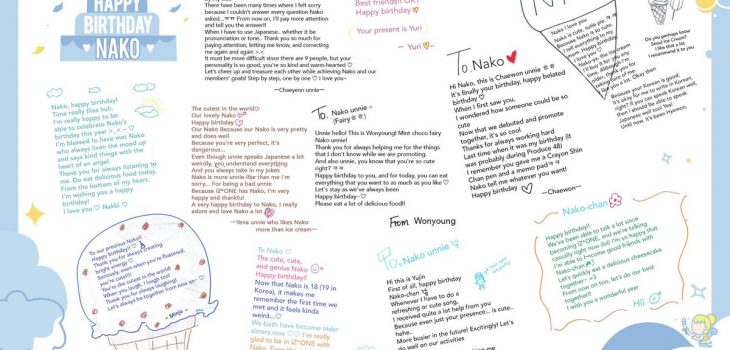 HAPPY
BIRTHDAY
NAKO
There have been many times where I felt sorry
because I couldn't answer your question Nako
asked...ㅠㅠ From now on, I'll pay more attention
and tell you the answer!!
When I have to use Japanese.. whether it be
pronunciation or tone.. Thank you so much for
paying attention, letting me know, and correcting
me again and again >.<
It must be more difficult since there are 9 people, but your
personality is so good, you're so kind and warm-hearted ♡
Let's cheer up and treasure each other while achieving Nako and our
members' goals! Step by step, one by one ♡ I love you~
—Chaeyeon unnie—
Best friends!!
Happy birthday ♡
Your present is Yuri
- Yuri ♡ -
To. Nako
Hi Nako, this is Chaewon unnie ㅎㅎ
It's finally your birthday, happy belated
birthday ♡
When I first saw you,
I wondered how someone could be so
cute
Now that we debuted and promote
together, it's so cool
Thanks for always working hard
Last time when it was my birthday (It
was probably during Produce 48)
I remember you gave me a Crayon Shin
Chan pen and a memo padㅋㅋ
Nako tell me whatever you want!
Happy birthday ♡
—Chaewon—
Nako I love you
Nako is cute, cutie pie
Because Nako is so cute,
I tell everything to Nako
My lovely Nako
I love you so much
Do you perhaps know
Seoul Ice Cream?
I like that a lot
I recommend it to you
Because your Korean is good,
it's okay for me to write in Korean,
right? If you can speak Korean well,
then I should be able to speak
Japanese well too! Yes!
Until now, it's been Hyewon.
Nako, happy birthday!
Time really flies huh.
I'm really happy to be
able to celebrate Nako's
birthday this year >_< ~ ♡
I'm blessed to have met Nako
who always liven the mood up
and says kind things with the
heart of an angel.
Thank you for always listening
to me. Do eat delicious food today.
From the bottom of my heart,
I'm wishing you a happy
birthday!
I love you ♡ Nakbi ♡
The cutest in the world
Our lovely Nako
Happy birthday ♡
Our Nako Because our Nako is very pretty
and does well
Because you're very perfect, it's
dangerous...
Even though unnie speaks Japanese a bit
weirdly, you understand everything
And you always take in my jokes
Nako is more unnie-like than me I'm
sorry... For being a bad unnie
Because IZ*ONE has Nako, I'm very
happy and thankful
A very happy birthday to Nako, I really
adore and love Nako a lot
—Yena unnie who likes Nako
more than ice cream—
To. Nako unnie
(Fairy)
Unnie hello! This is Wonyoung! Mint choco fairy
Nako unnie!
Thank you for always helping me for the things
that I don't know while we are promoting.
And also unnie, you know that you're so cute
right? ㅋㅋ
Happy birthday to you, and for today, you can eat
everything that you want to as much as you like ♡
Let's stay as we've always been
Happy birthday~♡
Please eat a lot of delicious food!!
From Wonyoung
To our precious Nako!!
Happy birthday!! ♡
Thank you for always creating
bright energy ♡
Seriously, even when you're flustered,
you're so cute.
You're the cutest in the world
When you laugh, I laugh too!
Thank you for always laughing!
Let's always be together from now on! ♡
- Minju -
To Nako ♡
The cute, cute,
and genius Nako
Happy birthday!!
Now that Nako is 18 (19 in
Korea), it makes me
remember the first time we
met and it feels kinda
weird...♡
We both have become older
sisters now ♡♡ I'm really
glad to be in IZ*ONE with
To. Nako unnie
Hi this is Yujin
First of all, happy birthday
Nako-chan
Whenever I have to do a
refreshing or cute song,
I received quite a lot help from you
Because even just your presence.. is cute..
hehe..
More busier in the future! Excitingly! Let's
do well on our activities
Nako-chan
Happy birthday!
We've been able to talk a lot since
becoming IZ*ONE, and we're talking
casually right now (lol) I'm so happy that
I'm able to become good friends with
Nako-chan
Let's quickly eat a delicious cheesecake
together~ =3
From now on too, let's do our best
together!
I wish you a wonderful year
Hii